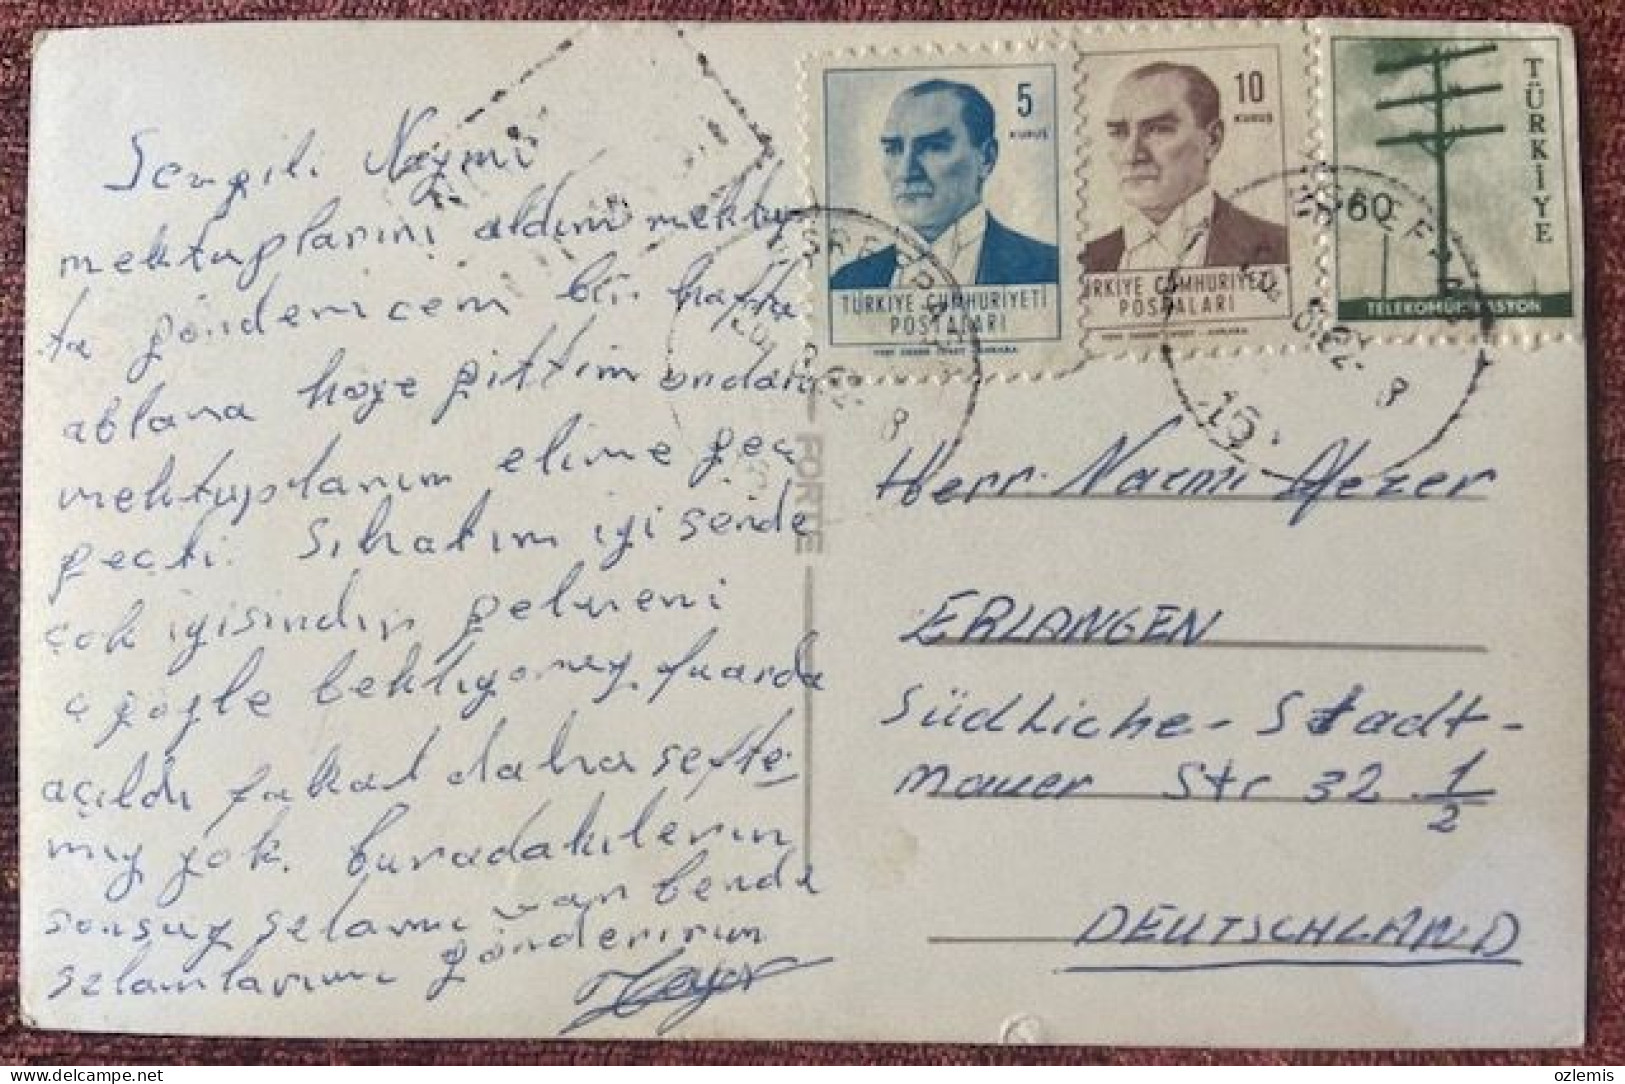 Sevgili Naymi
mektuplarını aldım mektup
ta göndericem bir hafta
ablana hoye gittim ondan
mektuplarım elime geç
geçti. Sıhatım iyi sende
çok iyisindir gelmeni
 bekliyoruz fuarda
açıldı fakat daha sefte
mız yok. buradakilerin
sonsuz selamı var bende
selamlarımı gönderirim
5
KURUŞ
TÜRKİYE CUMHURİYETİ
POSTALARI
10
KURUŞ
TÜRKİYE CUMHURİYETİ
POSTALARI
TÜRKİYE
60
TELEKOMÜNİKASYON
15.
FORTE
Herr. Naemi Hezer
ERLANGEN
Südliche-Stadt-
mauer Str 32 1/2
DEUTSCHLAND
ozlemis